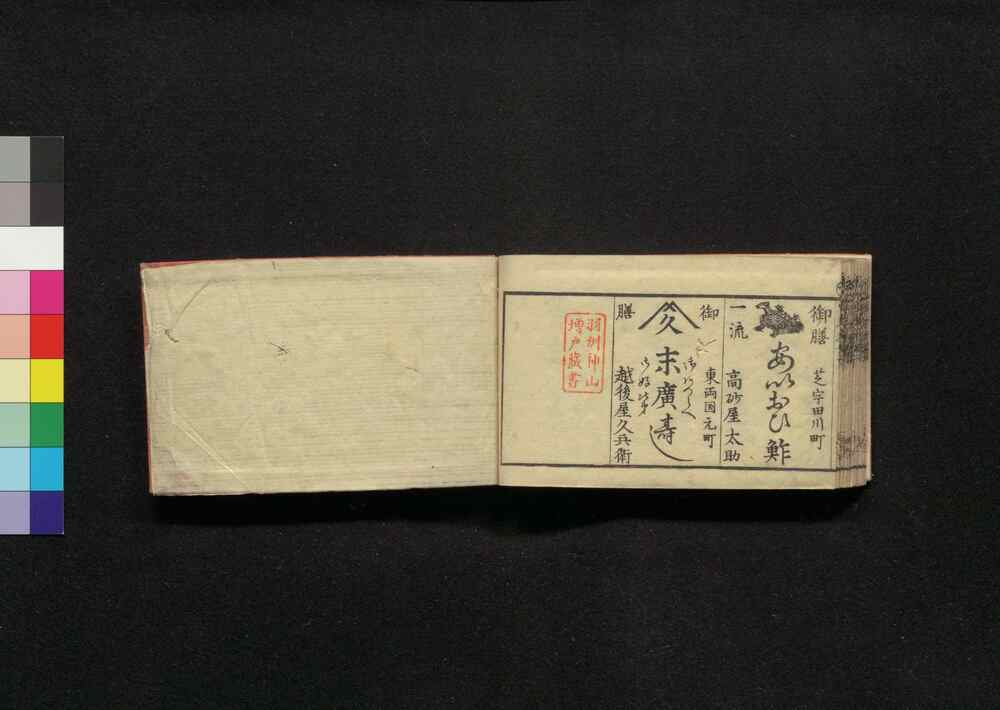 御膳
芝宇田川町
あいおひ鮓
一流
高砂屋太助
御
東両国元町
久
末廣壽し
膳
越後屋久兵衛
羽州仲山
増戸蔵書